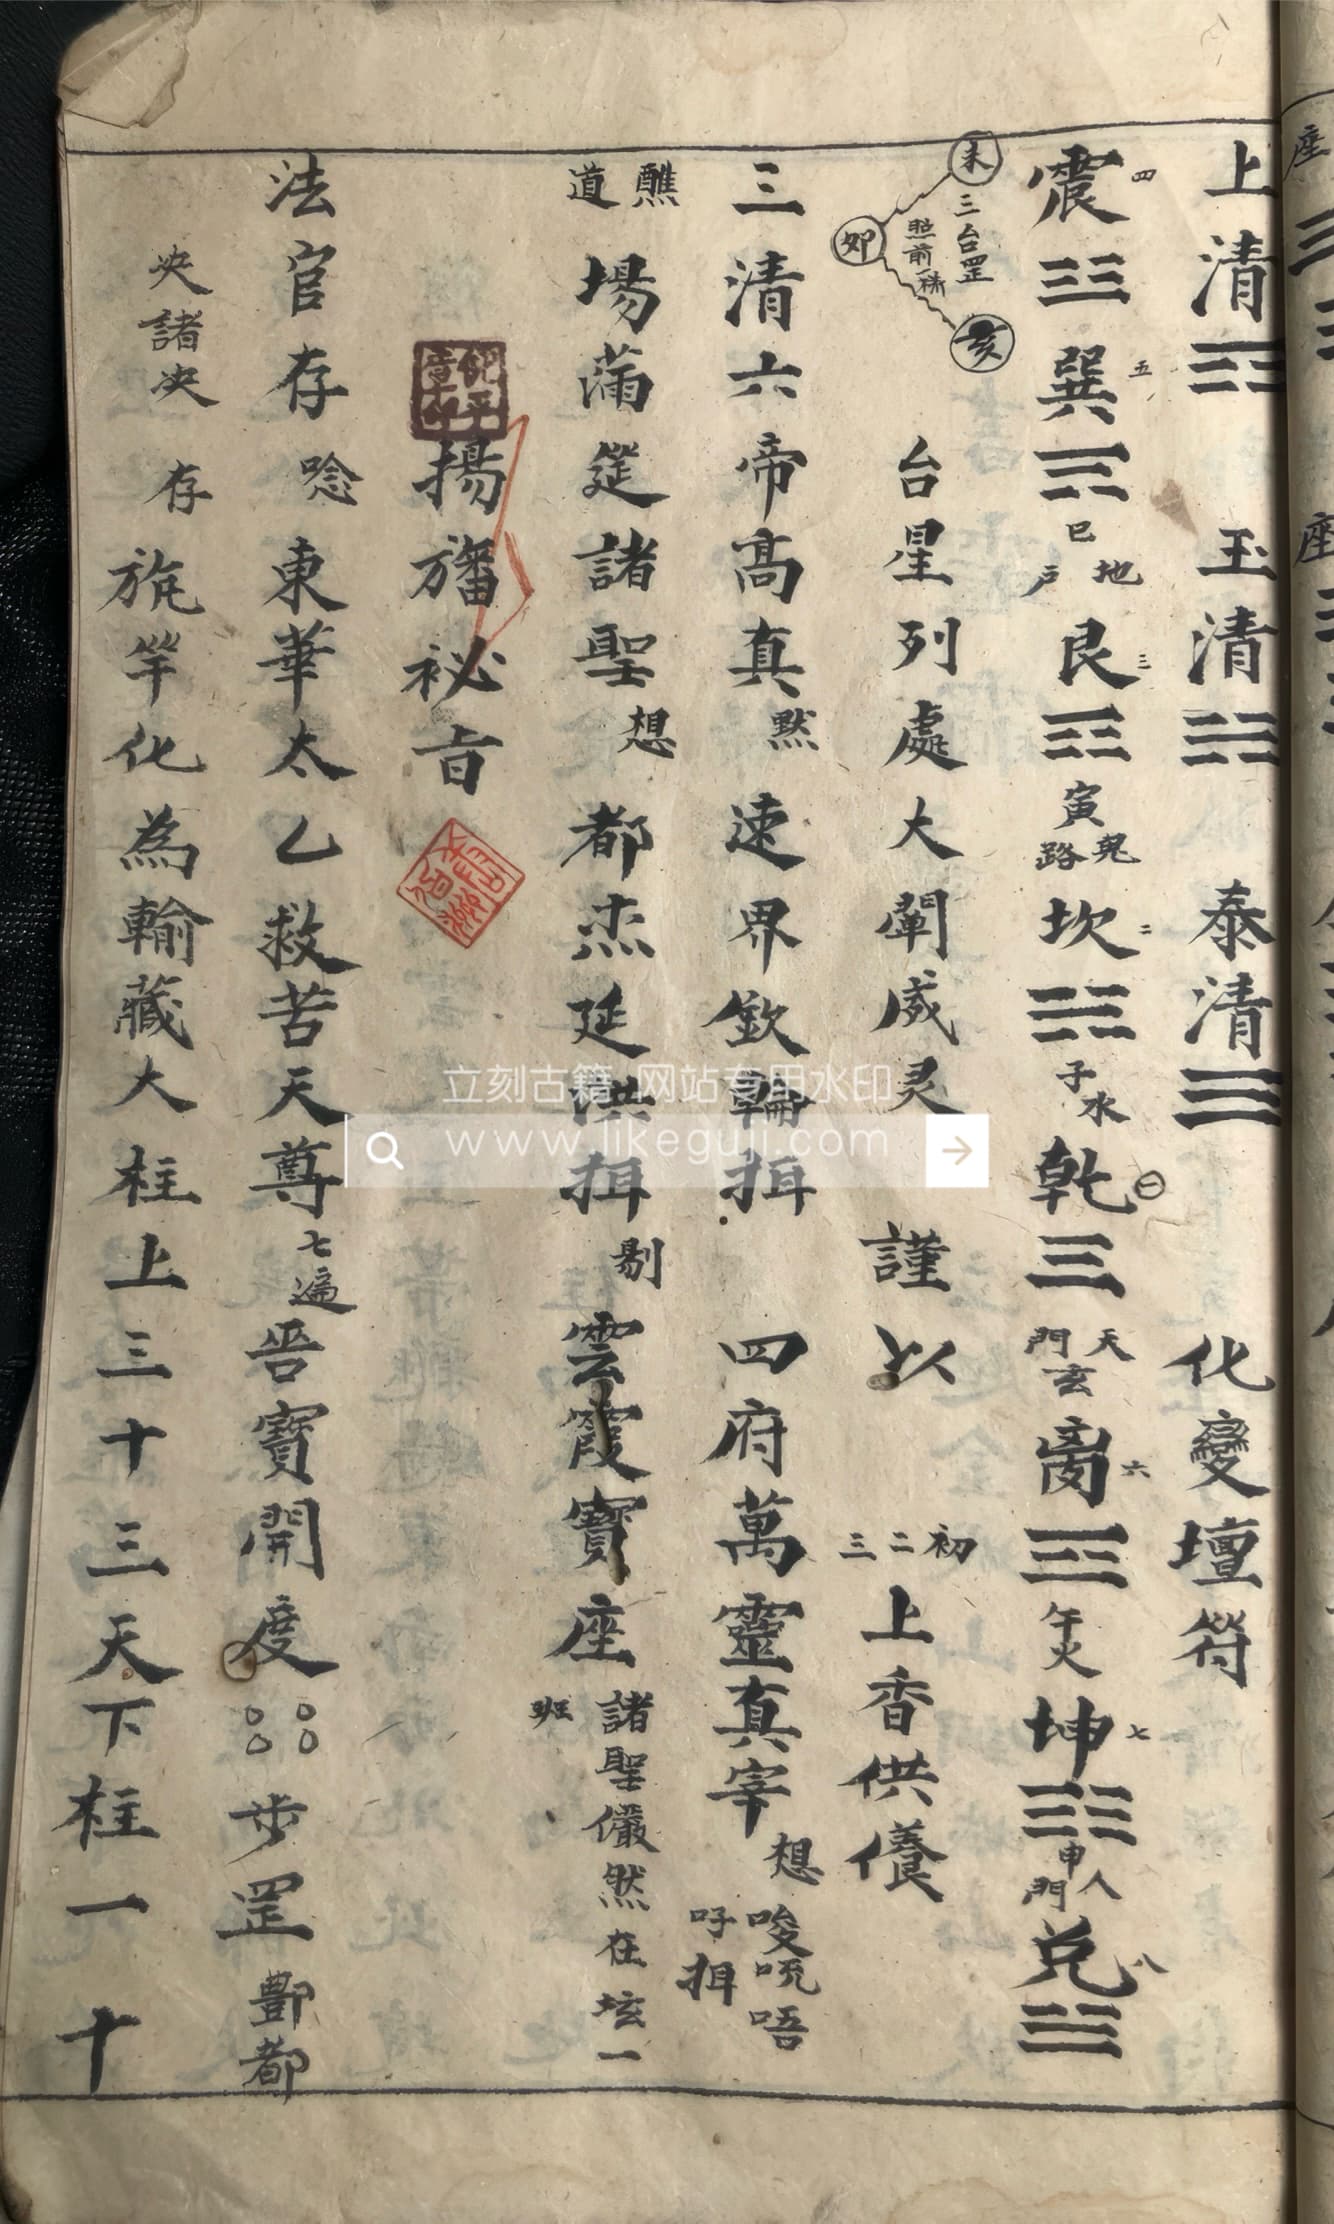 上清☵ 玉清☷ 泰清☰ 化變壇符
震四☳巽五☴巳地戶艮三☶寅鬼路坎二☵子水乾一☰天門亥离六☲午火坤七☷申人門兌八☱
未
三台罡
照前一樣
卯
亥
台星列處大闡威灵 謹以 初二三上香供養
三清六帝高真默速界欽輪揖 四府萬靈真宰想
唆吮唔
吇揖
醮道場蒲筵諸聖想都杰延洪揖剔雲霞寶座諸聖儼然在坛一班
揚旛袐旨
法官存唸東華太乙救苦天尊七遍吞寶開度步罡酆都
夬諸夬 存旄竿化為輸藏大柱上三十三天下柱一十
座
座
立刻古籍 网站专用水印
www.likeguji.com